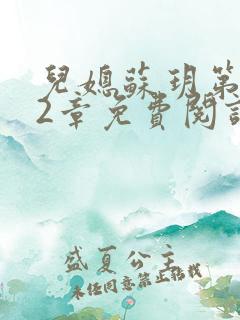 兒媳蘇玥第
2章免費閱讀
盛夏公主
未經同意禁止轉載